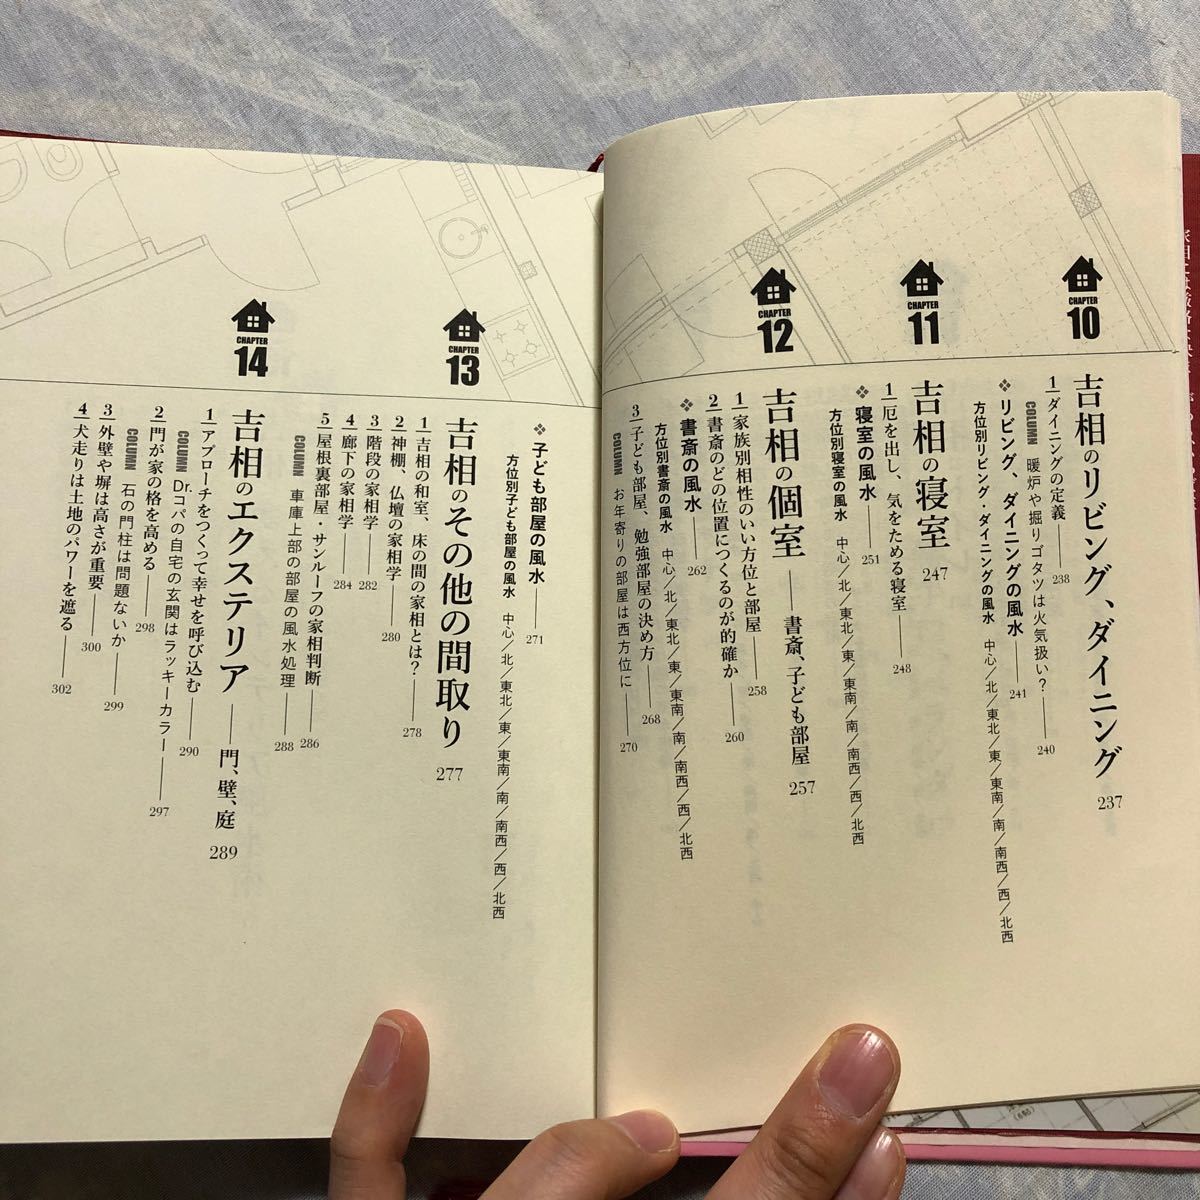 CHAPTER
10
吉相のリビング、ダイニング 237
1 ダイニングの定義 238
COLUMN 暖炉や掘りゴタツは火気扱い? 240
❖リビング、ダイニングの風水 241
方位別リビング・ダイニングの風水 中心/北/東北/東/東南/南/南西/西/北西
CHAPTER
11
吉相の寝室 247
1 厄を出し、気をためる寝室 248
❖寝室の風水 251
方位別寝室の風水 中心/北/東北/東/東南/南/南西/西/北西
CHAPTER
12
吉相の個室 ——書斎、子ども部屋 257
1 家族別相性のいい方位と部屋 258
2 書斎のどの位置につくるのが的確か 260
❖書斎の風水 262
方位別書斎の風水 中心/北/東北/東/東南/南/南西/西/北西
3 子ども部屋、勉強部屋の決め方 268
COLUMN お年寄りの部屋は西方位に 270
❖子ども部屋の風水 271
方位別子ども部屋の風水 中心/北/東北/東/東南/南/南西/西/北西
CHAPTER
13
吉相のその他の間取り 277
1 吉相の和室、床の間の家相とは? 278
2 神棚、仏壇の家相学 280
3 階段の家相学 282
4 廊下の家相学 284
5 屋根裏部屋・サンルーフの家相判断 286
COLUMN 車庫上部の部屋の風水処理 288
CHAPTER
14
吉相のエクステリア ——門、壁、庭 289
1 アプローチをつくって幸せを呼び込む 290
COLUMN Dr.コパの自宅の玄関はラッキーカラー 297
2 門が家の格を高める 298
COLUMN 石の門柱は問題ないか 299
3 外壁や塀は高さが重要 300
4 犬走りは土地のパワーを遮る 302